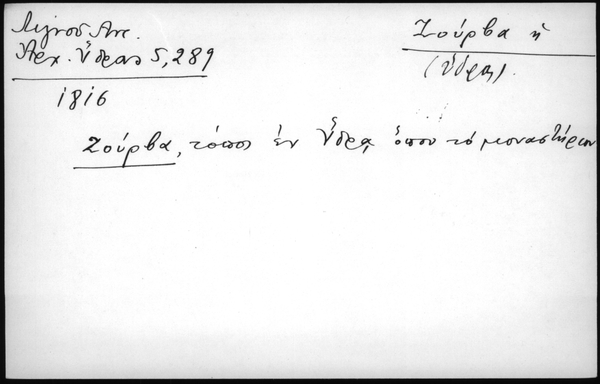 Λιγνού Αντ.
Αρχ. Ύδρας 5, 289
1816
Ζούρβα ἡ
(Ύδρα).
Ζούρβα, τόπος ἐν Ύδρᾳ, ὅπου τὸ μοναστήριον